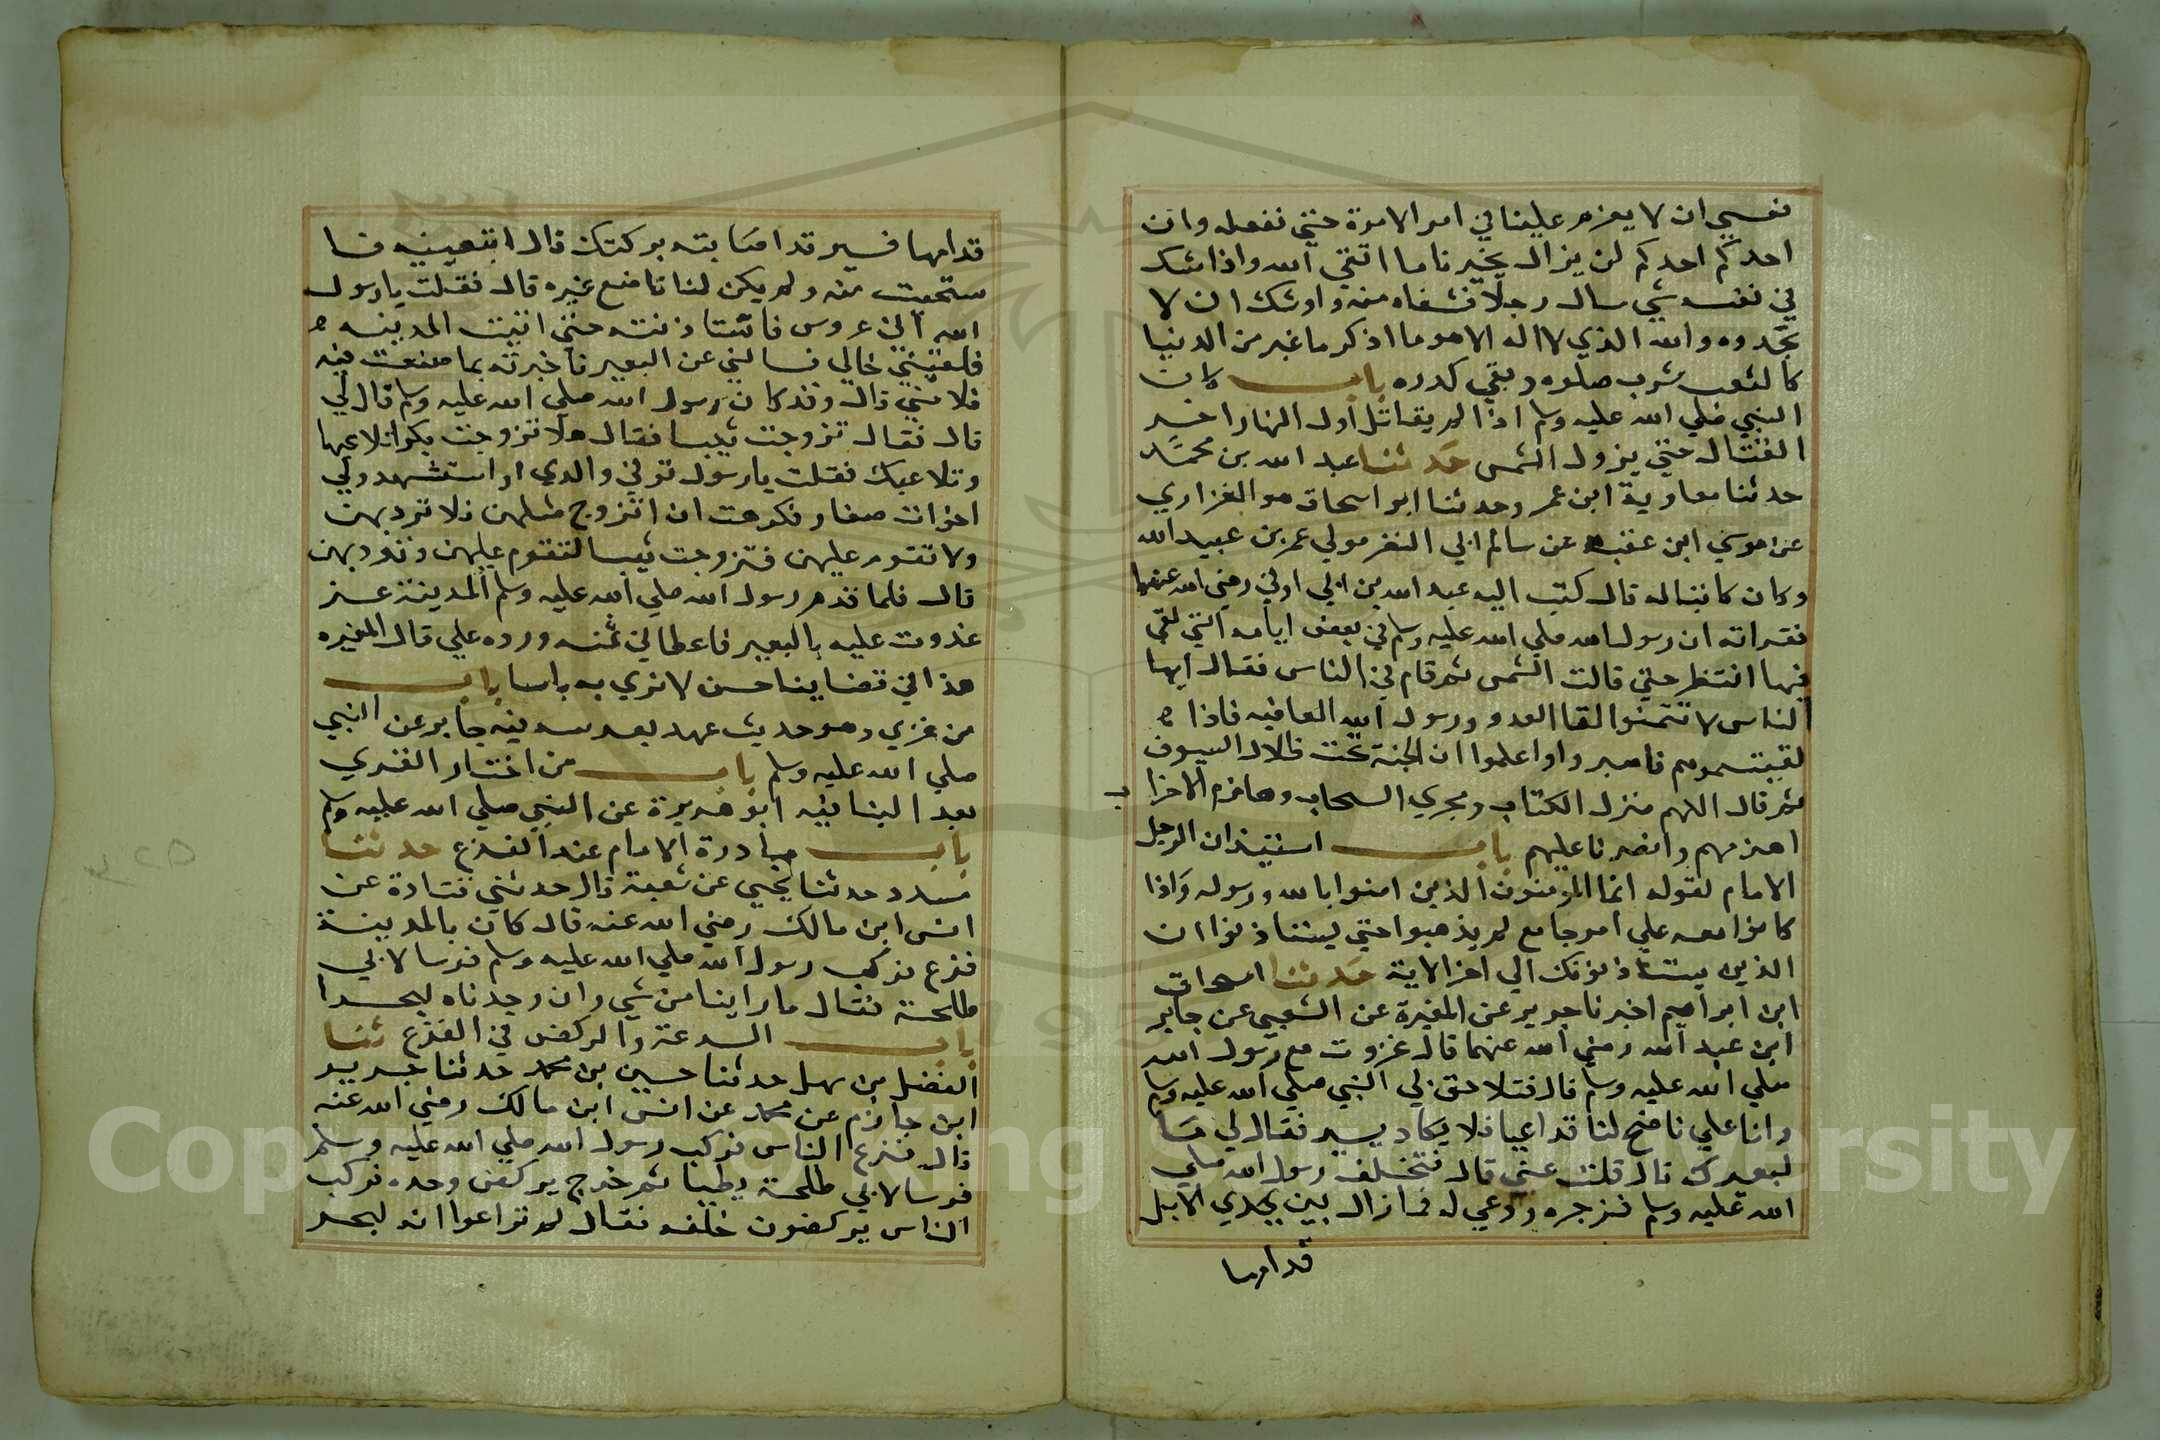 نفسي ان لا يعزم علينا في امر الا مرة حتي نفعله وان
احدكم احدكم لن يزال بخير ما اتقي الله واذا شك
في نفسه شي سال رجلا فشفاه منه واوشك ان لا
تجدوه والله الذي لا اله الا هو ما اذكر ما غبر من الدنيا
كالثغب شرب صفوه وبقي كدره باب كان
النبي صلي الله عليه وسلم اذا لم يقاتل اول النهار اخر
القتال حتي يزول الشمس حدثنا عبد الله بن محمد
حدثنا معاوية ابن عمر وحدثنا ابو اسحاق هو الفزاري
عن موسي ابن عقبه عن سالم ابي النضر مولي عمر بن عبيد الله
وكان كاتبا له قال كتب اليه عبد الله بن ابي اوفي رضي الله عنهما
فقراته ان رسول الله صلي الله عليه وسلم في بعض ايامه التي لقي
فيها انتظر حتي قالت الشمس ثم قام في الناس فقال ايها
الناس لا تتمنوا لقا العدو ورسول الله العافيه فاذا
لقيتموهم فاصبروا واعلموا ان الجنة تحت ظلال السيوف
ثم قال اللهم منزل الكتاب ومجري السحاب وهازم الاحزا
ب
اهزمهم وانصرنا عليهم باب استيذان الرجل
الامام لقوله انما المؤمنون الذين امنوا بالله ورسوله واذا
كانوا معه علي امر جامع لم يذهبوا حتي يستاذنوا ان
الذين يستاذنونك الي اخر الاية حدثنا اسحاق
ابن ابراهيم اخبرنا جرير عن المغيرة عن الشعبي عن جابر
ابن عبد الله رضي الله عنهما قال غزوت مع رسول الله
صلي الله عليه وسلم قال فتلاحق بي النبي صلي الله عليه وسلم
وانا علي ناضح لنا قد اعيا فلا يكاد يسير فقال لي ما
لبعيرك قال قلت عيي قال فتخلف رسول الله صلي
الله عليه وسلم فزجره ودعي له فما زال بين يدي الابل
قدامها
قدامها فسير قد اصابته بركتك قال افتبعنيه فا
ستحيت منه ولم يكن لنا ناضح غيره قال فقلت يا رسول
الله اني عروس فاستاذنته حتي اتيت المدينه
فلقيني خالي فسالني عن البعير فاخبرته بما صنعت فيه
فلامني قال وقد كان رسول الله صلي الله عليه وسلم قال لي
قال فقال تزوجت ثيبا فقال هلا تزوجت بكرا تلاعبها
وتلاعبك فقلت يا رسول توفي والدي او استشهد ولي
اخوات صغار فكرهت ان اتزوج مثلهن فلا تودبهن
ولا تقوم عليهن فتزوجت ثيبا لتقوم عليهن وتودبهن
قال فلما قدم رسول الله صلي الله عليه وسلم المدينة
غدوت عليه بالبعير فاعطاني ثمنه ورده علي قال المغيره
هذا في قضاينا حسن لا نري به باسا باب
من غزي وهو حديث عهد بعرسه فيه جابر عن النبي
صلي الله عليه وسلم باب من اختار الغزي
بعد البنا فيه ابو هريرة عن النبي صلي الله عليه وسلم
باب مبادرة الامام عند الفزع حدثنا
مسدد حدثنا يحيي عن شعبة قال حدثني قتادة عن
انس ابن مالك رضي الله عنه قال كان بالمدينة
فزع فركب رسول الله صلي الله عليه وسلم فرسا لابي
طلحة فقال ما راينا من شي وان وجدناه لبحرا
باب السرعة والركض في الفزع ثنا
الفضل بن سهل حدثنا حسين بن محمد حدثنا جرير
ابن حازم عن محمد عن انس ابن مالك رضي الله عنه
قال فزع الناس فركب رسول الله صلي الله عليه وسلم
فرسا لابي طلحة بطيا ثم خرج يركض وحده فركب
الناس يركضون خلفه فقال لم تراعوا انه لبحر
Copyright © King Saud University